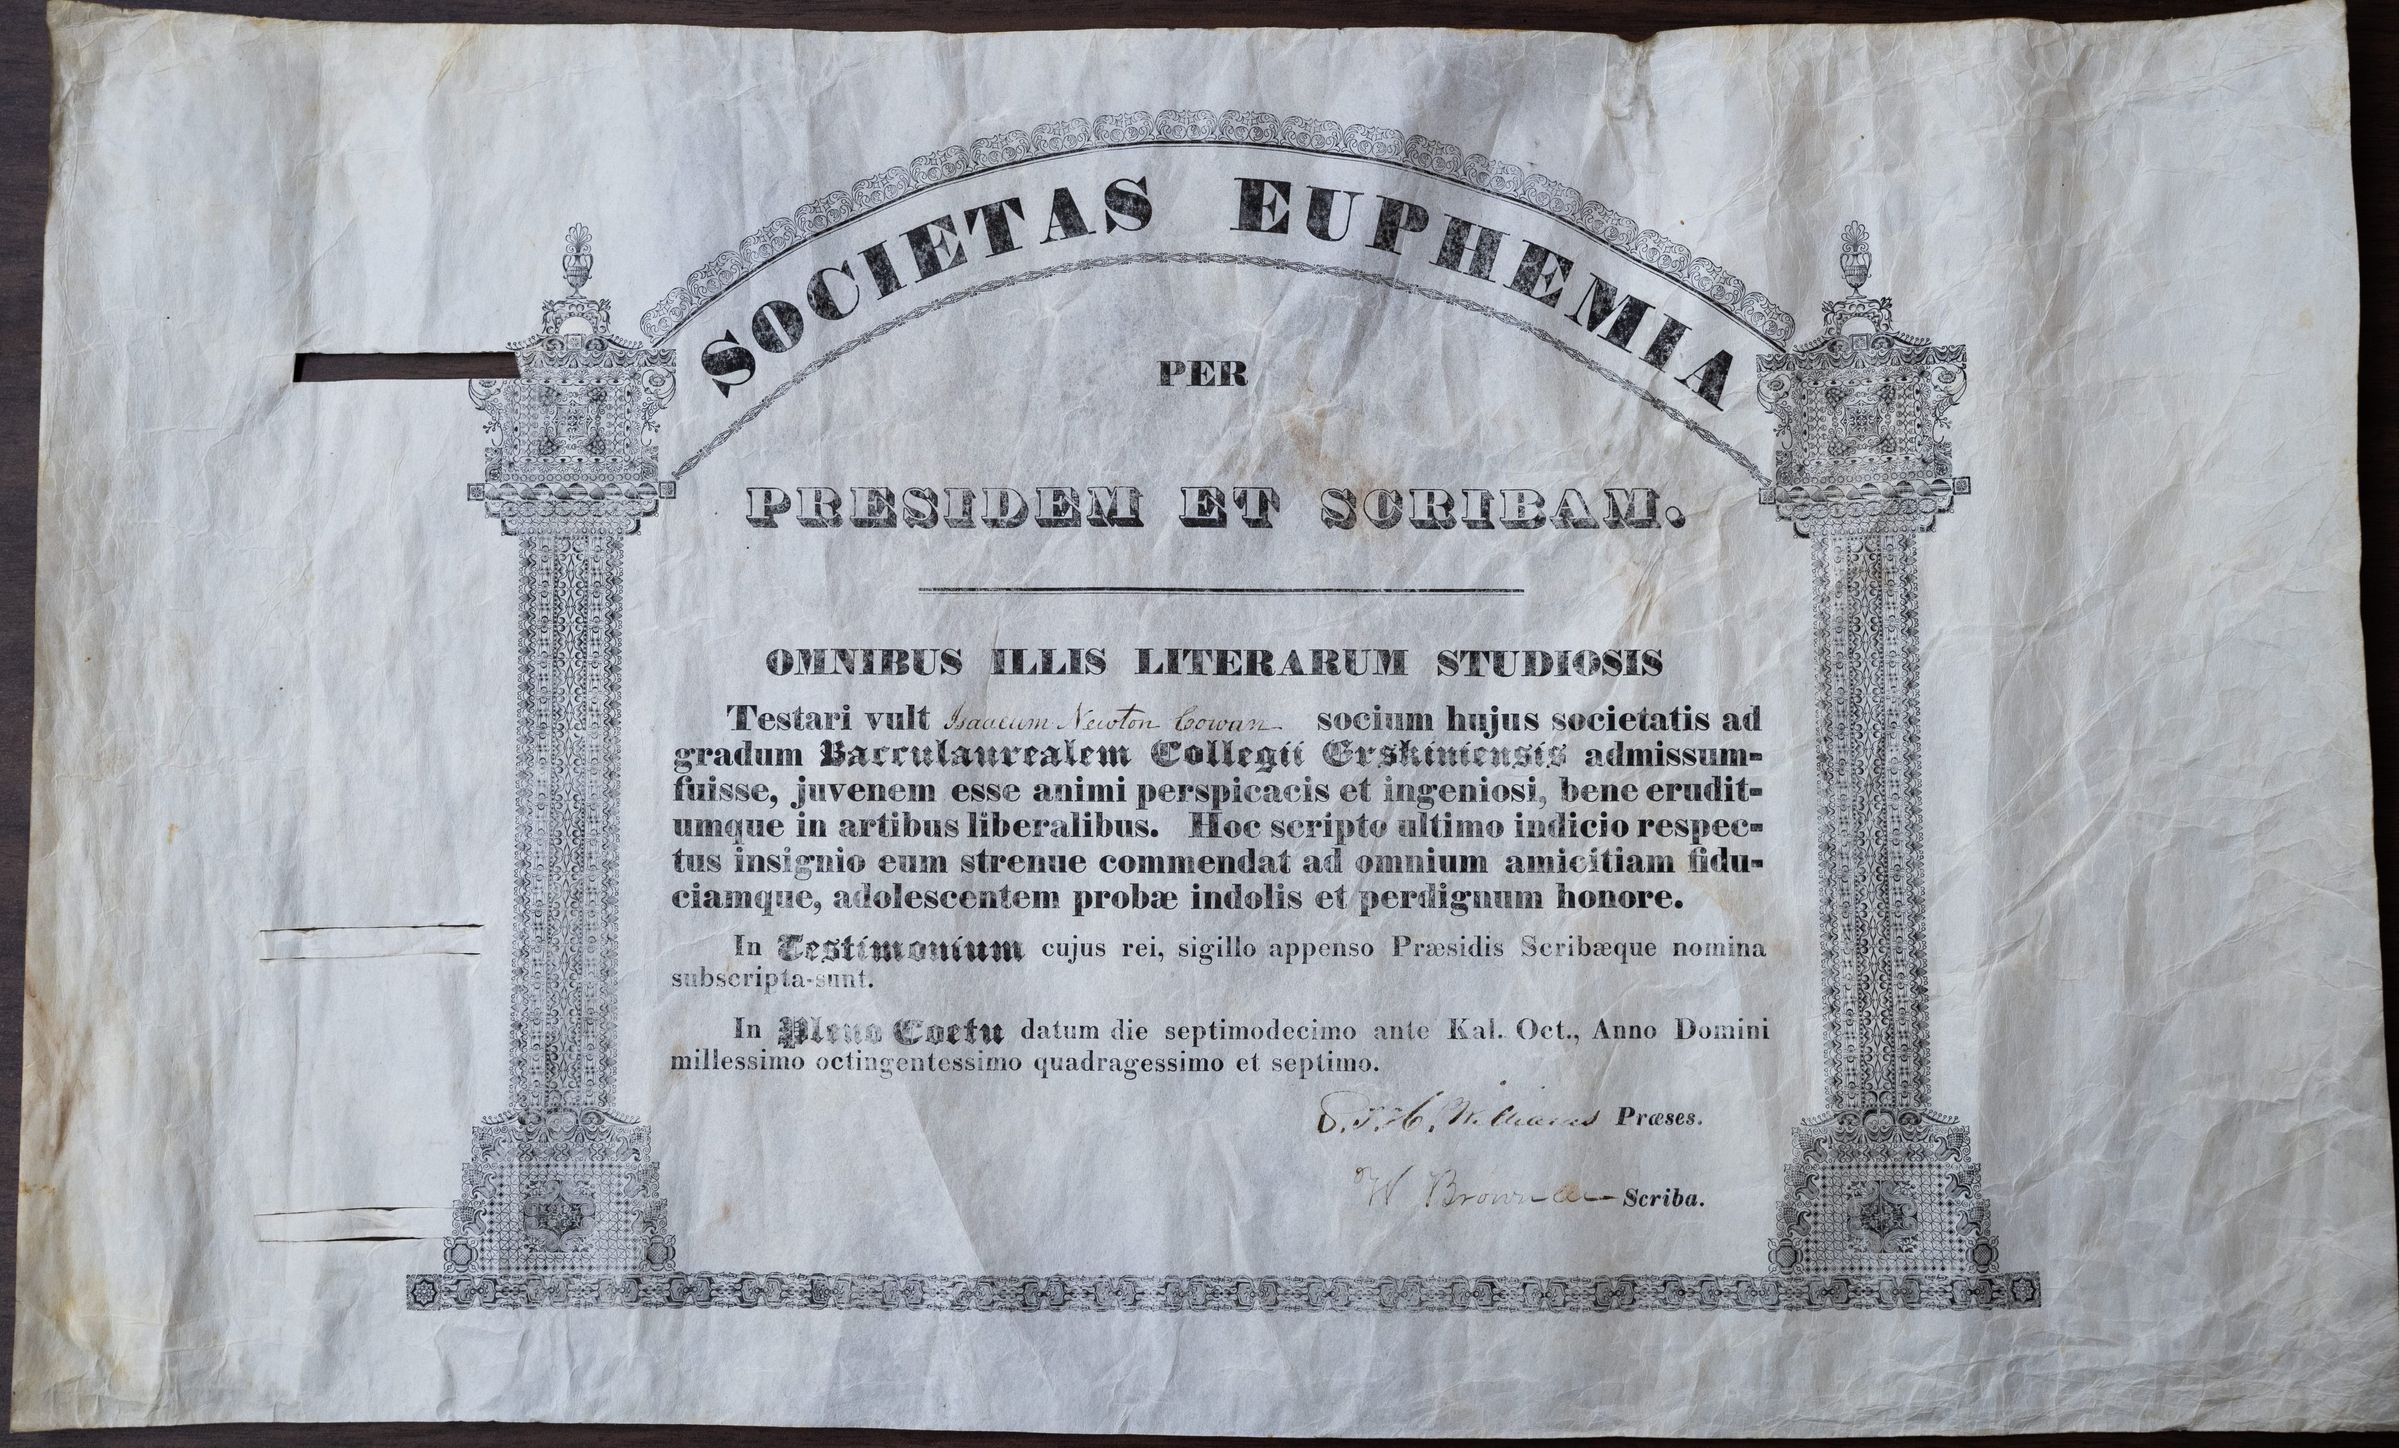 SOCIETAS EUPHEMIA
PER
PRESIDEM ET SCRIBAM.
OMNIBUS ILLIS LITERARUM STUDIOSIS
Testari vult Isaacum Newton Cowan socium hujus societatis ad
gradum Bacculaurealem Collegii Erskiniensis admissum-
fuisse, juvenem esse animi perspicacis et ingeniosi, bene erudit-
umque in artibus liberalibus. Hoc scripto ultimo indicio respec-
tus insignio eum strenue commendat ad omnium amicitiam fidu-
ciamque, adolescentem probæ indolis et perdignum honore.
In Testimonium cujus rei, sigillo appenso Præsidis Scribæque nomina
subscripta-sunt.
In Pleno Coetu datum die septimodecimo ante Kal. Oct., Anno Domini
millessimo octingentessimo quadragessimo et septimo.
H. Williams Præses.
W Brownlee Scriba.